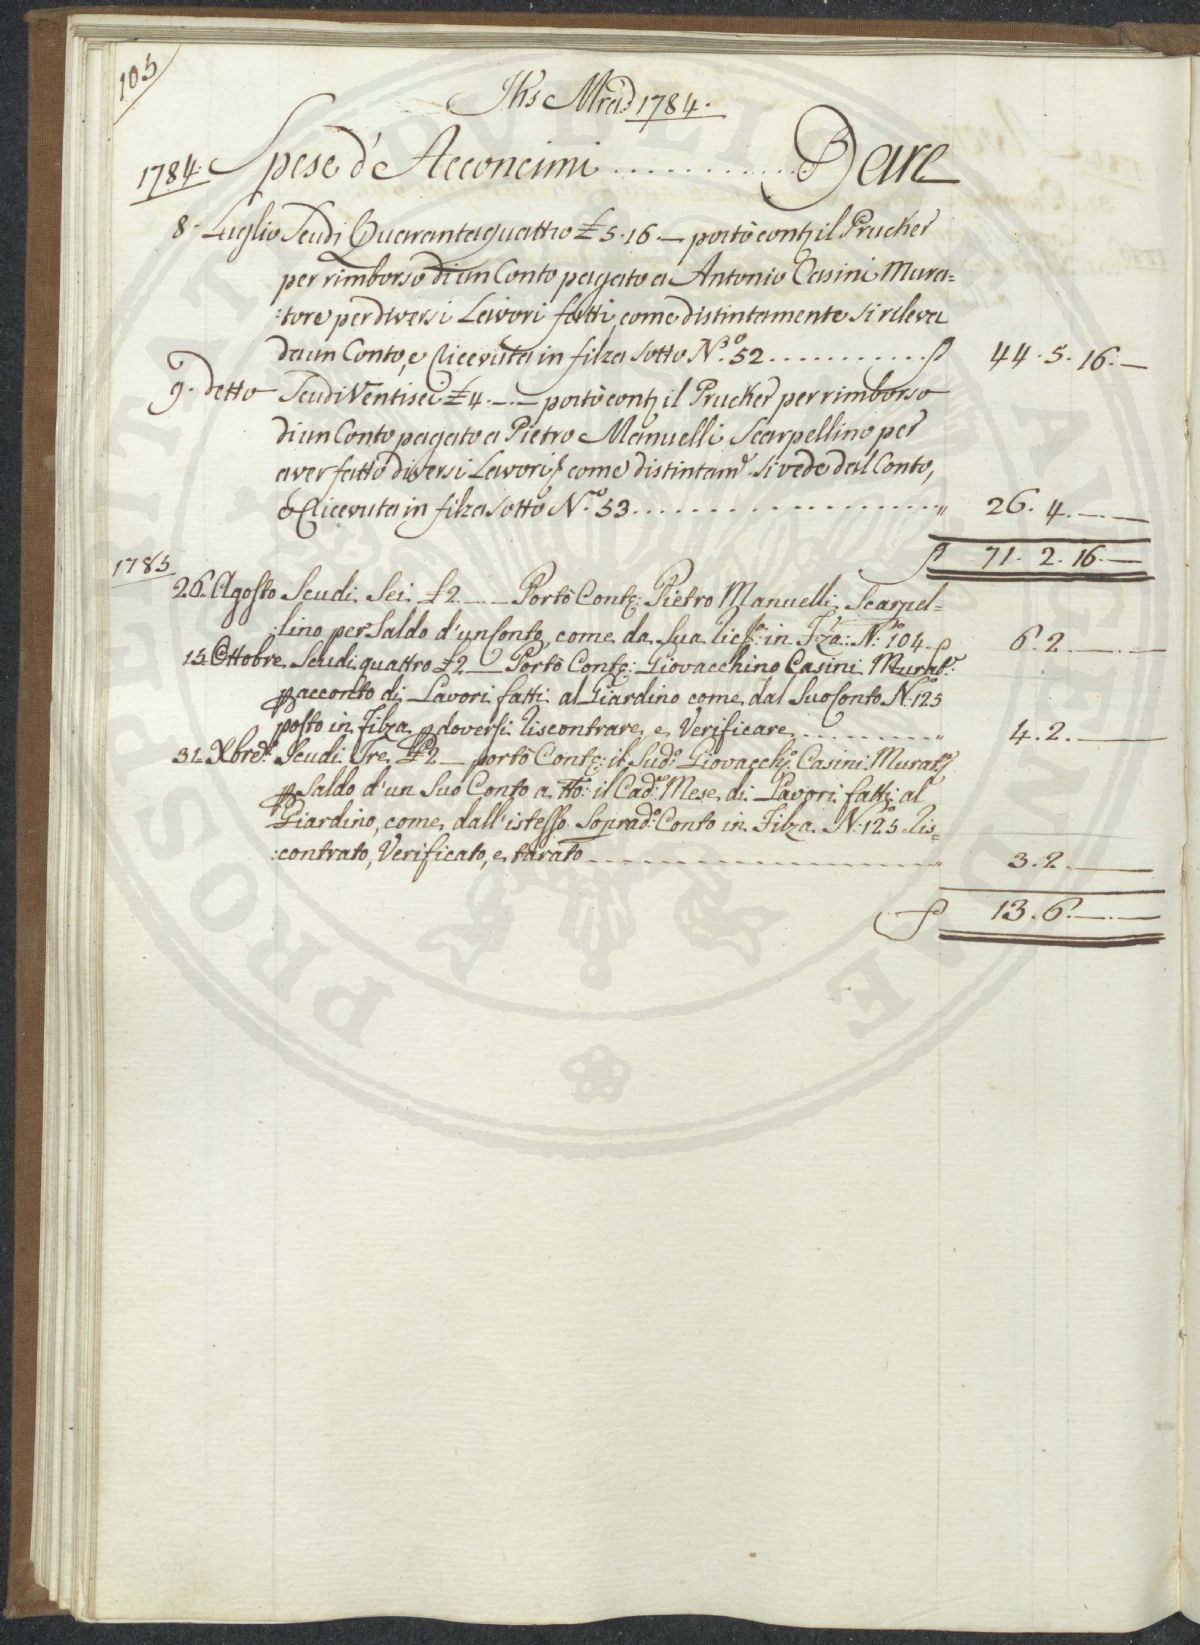 105
Jhs Mra 1784.
1784. Spese d'Acconcimi ............ Dare
8. Luglio Scudi Quarantaquattro £ 5.16.— portò cont. il Prucker
per rimborso di un Conto pagato a Antonio Casini Mura=
:tore per diversi Lavori fatti, come distintamente si rileva
da un Conto, e Ricevuta in filza sotto N.º 52 ............ 44.5.16.—
9. detto Scudi Ventisei £ 4.—.— portò cont. il Prucker per rimborso
di un Conto pagato a Pietro Manuelli Scarpellino per
aver fatto diversi Lavori, come distintam.e si vede dal Conto,
e Ricevuta in filza sotto N.º 53 .................... " 26.4.—.—
71.2.16.—
1785
26. Agosto Scudi Sei £ 2.—.— Portò Cont.: Pietro Manuelli Scarpel=
:lino per Saldo d'un Conto, come da Sua in Fza: N.º 104 6.2.—.—
15. Ottobre Scudi quattro £ 2.— Portò Cont.: Giovacchino Casini Murat.e
p acconto di Lavori fatti al Giardino come dal Suo Conto N.º 125
posto in Filza p doversi riscontrare, e Verificare ......... " 4.2.—
31. Xbre d.º Scudi Tre £ 2.— portò Cont.: il Sud.º Giovacch.º Casini Murat.e
p Saldo d'un Suo Conto a tto: il Cad.e Mese di Lavori fatti al
Giardino, come dall'istesso Soprad.º Conto in Filza N.º 125 ris=
:contrato, Verificato, e tarato .................... " 3.2.—
13.6.—.—
PROSPERITATI PUBLICAE AUGENDAE